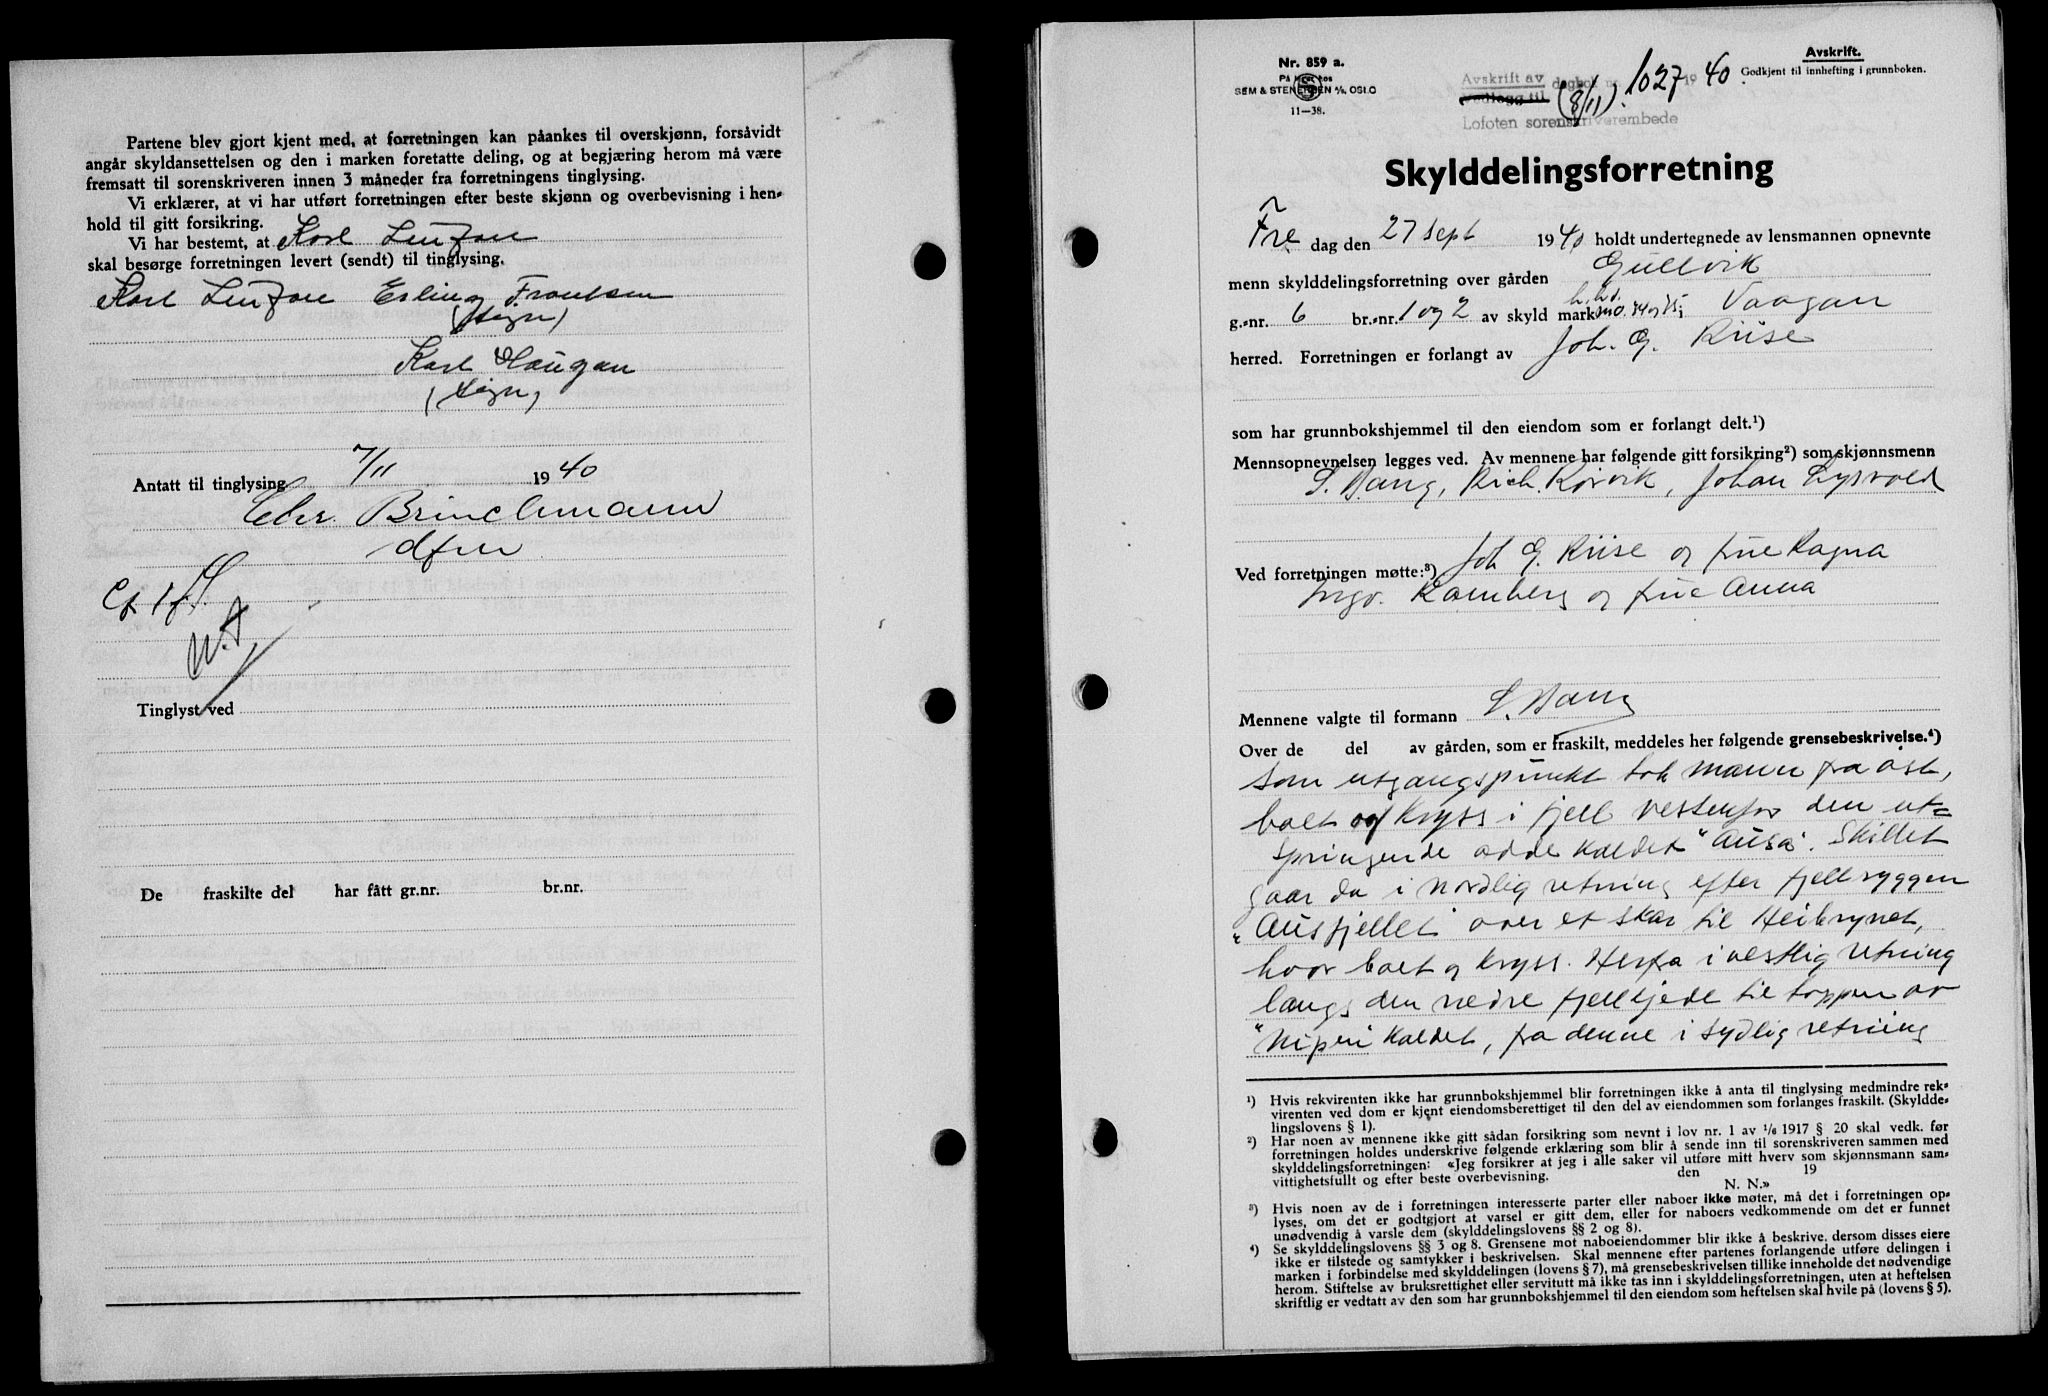 Partene blev gjort kjent med, at forretningen kan påankes til overskjønn, forsåvidt
angår skyldansettelsen og den i marken foretatte deling, og at begjæring herom må være
fremsatt til sorenskriveren innen 3 måneder fra forretningens tinglysing.
Vi erklærer, at vi har utført forretningen efter beste skjønn og overbevisning i hen-
hold til gitt forsikring.
Vi har bestemt, at Karl
skal besørge forretningen levert (sendt) til tinglysing.
Karl Erling Frantsen
(sign)
Karl Haugan
(sign)
Antatt til tinglysing 7/11 1940
Chr. Brinchmann
dfm
Tinglyst ved
De fraskilte del har fått gr.nr. br.nr.
Nr. 859 a.
SEM & STENERSEN A/S, OSLO
11—38.
Avskrift.
Godkjent til innhefting i grunnboken.
Avskrift av dagbok nr. 1027 1940
vedlegg til (8/11)
Lofoten sorenskriverembede
Skylddelingsforretning
Fre dag den 27 sept 1940 holdt undertegnede av lensmannen opnevnte
menn skylddelingsforretning over gården Gullvik
g.-nr. 6 br.-nr. 1 og 2 av skyld mark i Vaagan
herred. Forretningen er forlangt av Joh. G. Riise
som har grunnbokshjemmel til den eiendom som er forlangt delt.¹)
Mennsopnevnelsen legges ved. Av mennene har følgende gitt forsikring²) som skjønnsmenn
S. Bang, Rich. Rørvik, Johan Lysvold
Ved forretningen møtte:³) Joh G. Riise og frue Ragna
Ingv. Ramberg og frue Anna
Mennene valgte til formann S. Bang
Over de del av gården, som er fraskilt, meddeles her følgende grensebeskrivelse.⁴)
Som utgangspunkt tok mann fra øst,
bolt og kryss i fjell vestenfor den ut=
springende odde kaldet "Ausa". Skillet
gaar da i nordlig retning efter fjellryggen
"Ausfjellet" over et skar til Heibrynet,
hvor bolt og kryss. Herfra i vestlig retning
langs den nedre fjellkjede til toppen av
"Nipen" kaldet, fra denne i sydlig retning
¹) Hvis rekvirenten ikke har grunnbokshjemmel blir forretningen ikke å anta til tinglysing medmindre rek-
virenten ved dom er kjent eiendomsberettiget til den del av eiendommen som forlanges fraskilt. (Skyldde-
lingslovens § 1).
²) Har noen av mennene ikke gitt sådan forsikring som nevnt i lov nr. 1 av 1/6 1917 § 20 skal vedk. før
forretningen holdes underskrive følgende erklæring som blir å sende inn til sorenskriveren sammen med
skylddelingsforretningen: «Jeg forsikrer at jeg i alle saker vil utføre mitt hverv som skjønnsmann sam-
vittighetsfullt og efter beste overbevisning. den 19
N. N.»
³) Hvis noen av de i forretningen interesserte parter eller naboer ikke møter, må det i forretningen op-
lyses, om det er godtgjort at varsel er gitt dem, eller for naboers vedkommende om det er funnet
unødvendig å varsle dem (skylddelingslovens §§ 2 og 8).
⁴) Se skylddelingslovens §§ 3 og 8. Grensene mot naboeiendommer blir ikke å beskrive, dersom disses eiere
ikke er tilstede og samtykker i beskrivelsen. Skal mennene efter partenes forlangende utføre delingen i
marken i forbindelse med skylddelingen (lovens § 7), må grensebeskrivelsen tillike inneholde det nødvendige
herom. Stiftelse av bruksrettighet eller servitutt må ikke tas inn i skylddelingsforretningen, uten at heftelsen
skriftlig er vedtatt av den som har grunnbokshjemmel til den eiendom som heftelsen skal hvile på (lovens § 5).